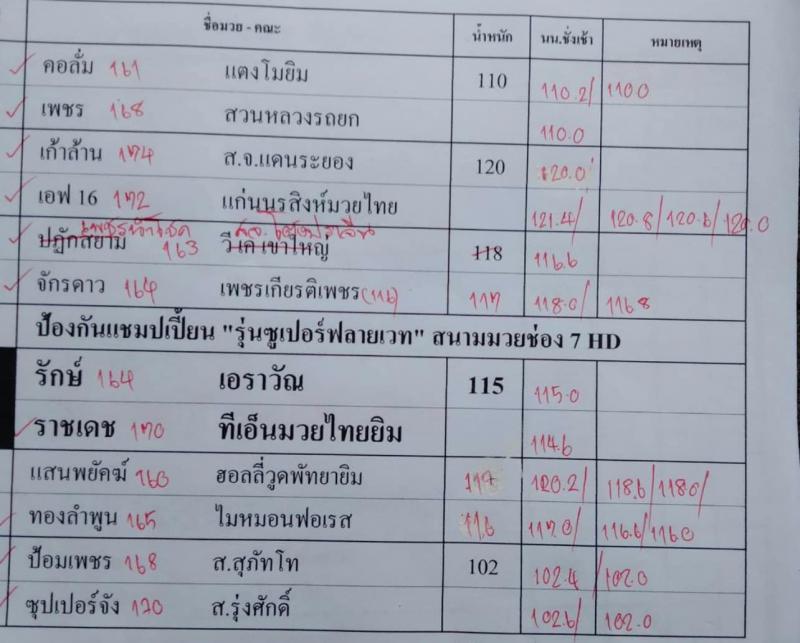 ชื่อมวย - คณะ น้ำหนัก นน.ชั่งเช้า หมายเหตุ
คอลั่ม 161 แตงโมยิม 110 110.2/ 110.0
เพชร 168 สวนหลวงรถยก 110.0
เก้าล้าน 174 ส.จ.แดนระยอง 120 120.0
เอฟ 16 172 แก่นนรสิงห์มวยไทย 121.4/ 120.8/120.6/120.0
ปฏักสยาม 163 วีเค เขาใหญ่ 118 116.6
จักรดาว 164 เพชรเกียรติเพชร (116) 117 118.0/ 116.8
ป้องกันแชมเปี้ยน "รุ่นซูเปอร์ฟลายเวท" สนามมวยช่อง 7 HD
รักษ์ 164 เอราวัณ 115 115.0
ราชเดช 170 ทีเอ็นมวยไทยยิม 114.6
แสนพยัคฆ์ 160 ฮอลลี่วูดพัทยายิม 117 120.2/ 118.6/118.0/
ทองลำพูน 165 ไมหมอนฟอเรส 116 117.0/ 116.6/116.0
ป้อมเพชร 168 ส.สุภัทโท 102 102.4 /102.0
ซุปเปอร์จัง 170 ส.รุ่งศักดิ์ 102.6/ 102.0